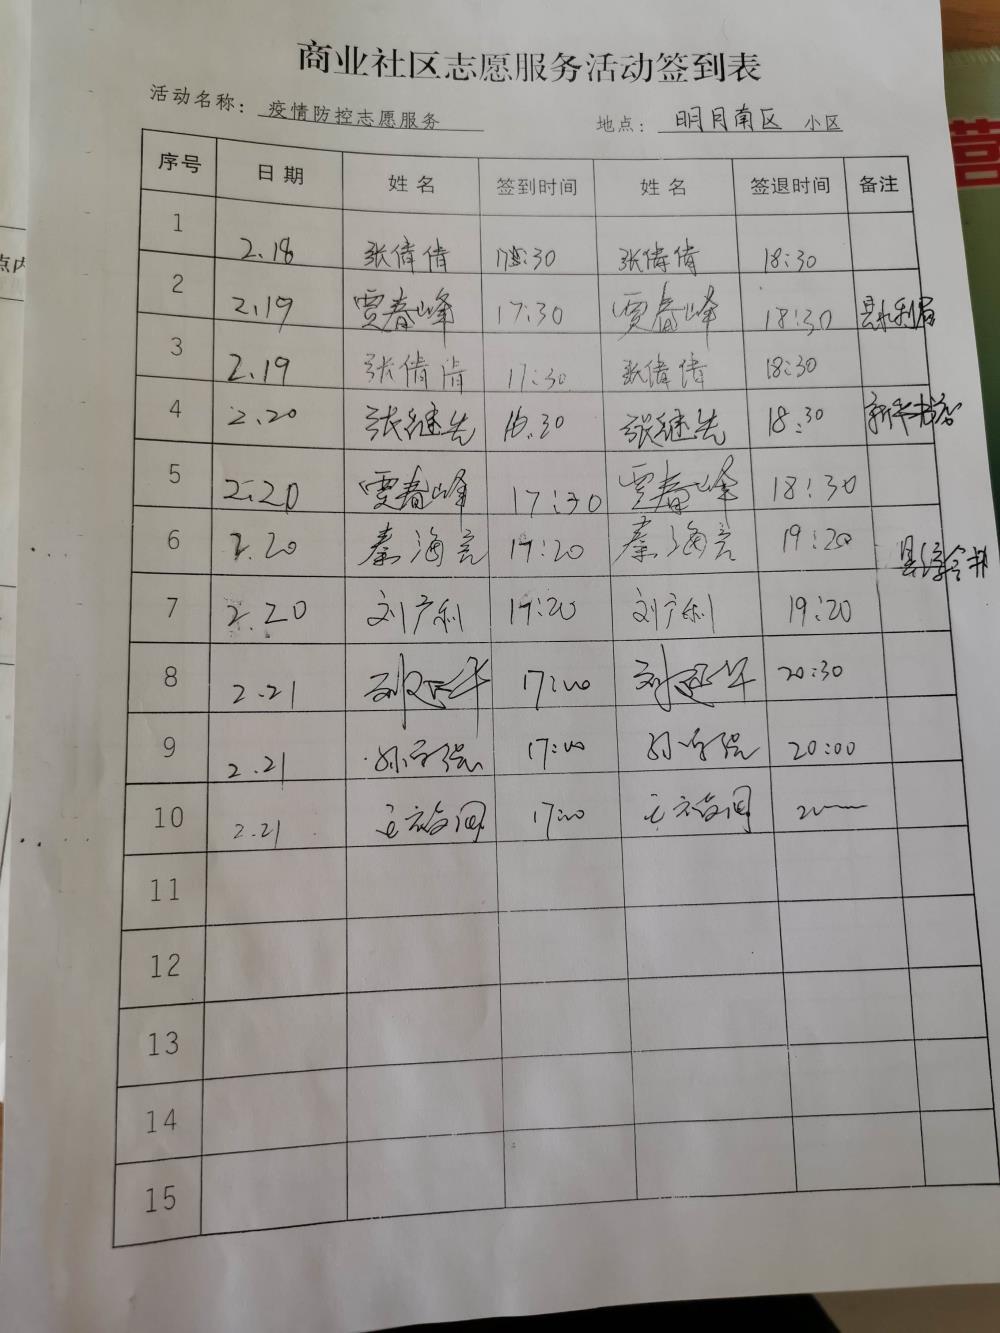 商业社区志愿服务活动签到表
活动名称： 疫情防控志愿服务 地点： 明月南区 小区
序号 日期 姓名 签到时间 姓名 签退时间 备注
1 2.18 张倩倩 17:30 张倩倩 18:30
2 2.19 贾春峰 17:30 贾春峰 18:30 县水利局
3 2.19 张倩倩 17:30 张倩倩 18:30
4 2.20 张继先 16.30 张继先 18:30 新华书店
5 2.20 贾春峰 17:30 贾春峰 18:30
6 2.20 秦海亮 17:20 秦海亮 19:20
7 2.20 刘广利 17:20 刘广利 19:20
8 2.21 17:00 20:30
9 2.21 17:00 20:00
10 2.21 17:00
11
12
13
14
15
点内
营